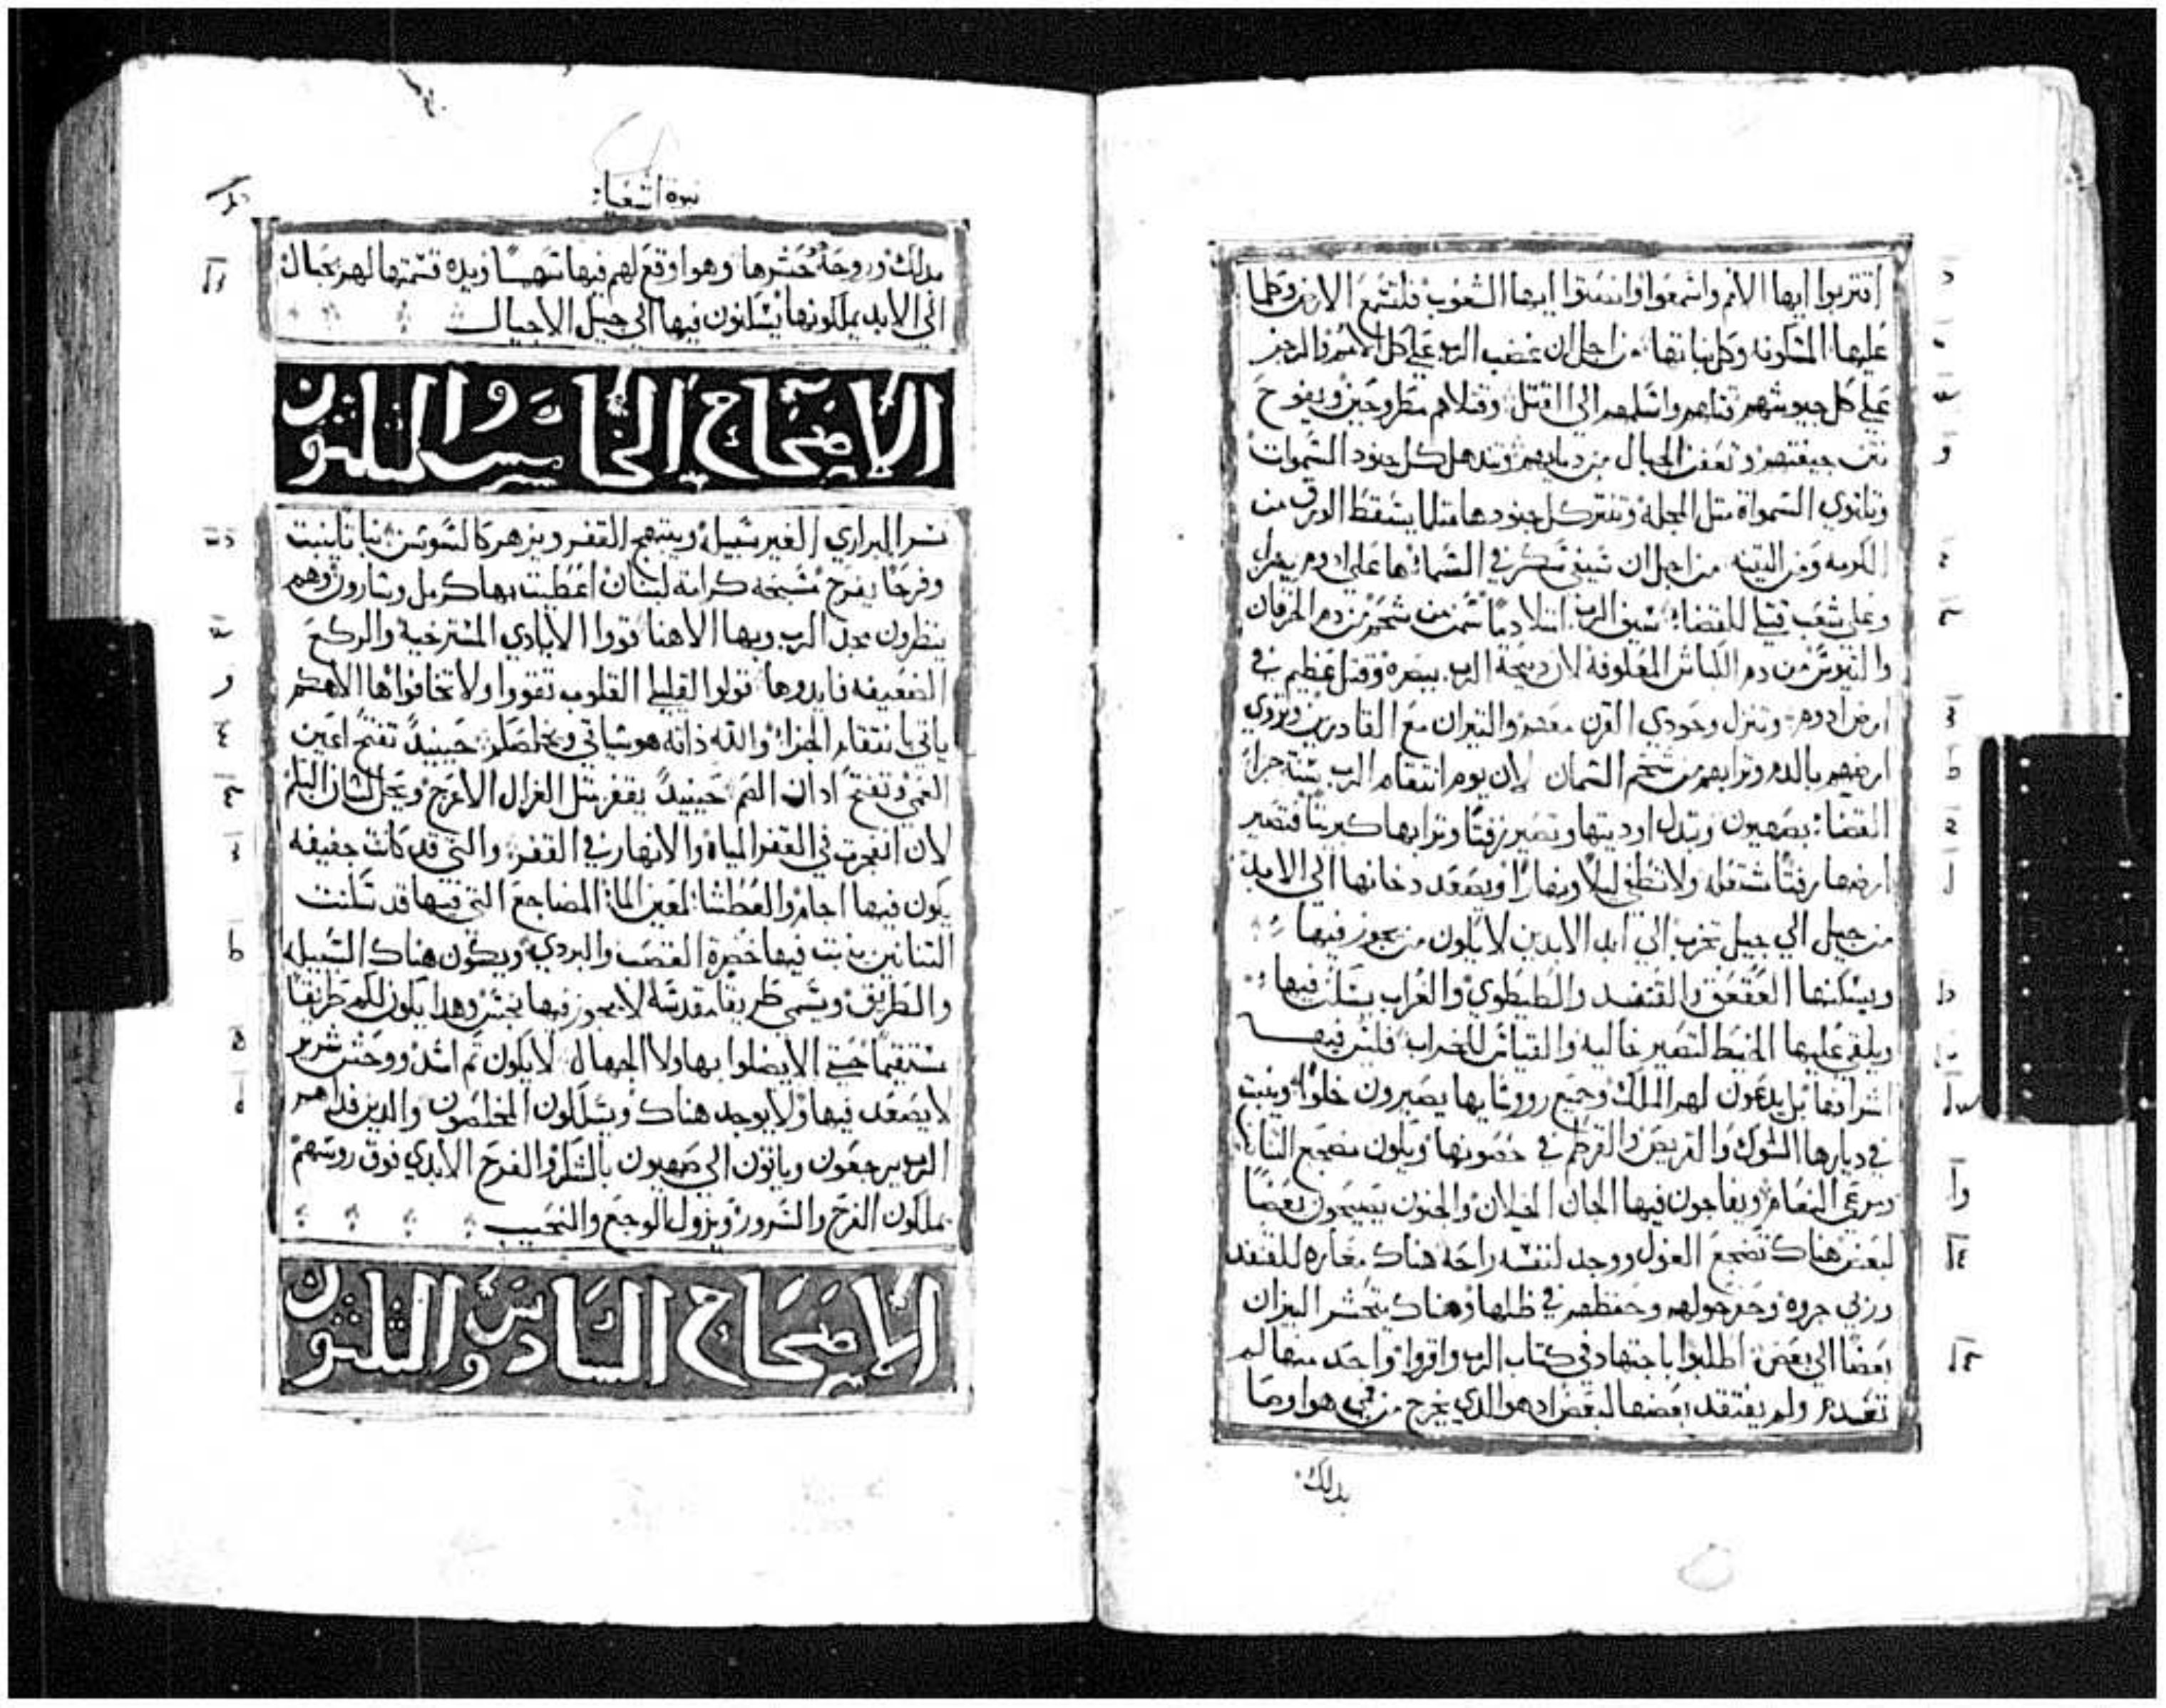 اقتربوا ايها الامم واسمعوا وانصتوا ايها الشعوب فلتسمع الارض وكلما
عليها المسكونه وكل نباتها من اجل ان غضب الرب علي كل الامم والرجز
علي كل جيوشهم قتلهم واسلمهم الي القتل وقتلاهم مطروحين ويفوح
نتن جيفتهم وتعفن الجبال من دمايهم وتدهل كل جنود السموات
وتانوي السمواة متل المجله وتنتر كل جنودها متلما يسقط الورق من
الكرمه ومن التينه من اجل ان سيفي سكر في السما ها علي ادوم ينزل
وعلي شعب قتلي للقضا سيف الرب امتلا دما سمن من شحم من دم الخرفان
والتيوس من دم الكباش المعلوفة لان دبيحة الرب ببصره وقتل عظيم في
ارض ادوم وتنزل وحودي القرن معهم والتيران مع القادرين وتروي
ارضهم بالدم وترابهم من شحم السمان لان يوم انتقام الرب سنة جزا
القضا بصهيون وتبدل اوديتها وتصير زفتا وترابها كبريتا فتصير
ارضها زفتا مشتعله ولا تطفي ليلا ونهارا ويصعد دخانها الي الابد
من جيل الي جيل تخرب الي ابد الابدين لا يكون من يجوز فيها
ويسكنها العقعق والقنفد والطيطوي والغراب يسكن فيها
ويلقي عليها الخيط لتصير خاليه والقياس للخراب فليس فيها
اشرافها بل يدعون لهم الملك وجميع رووسا بها يصيرون خلوا وينبت
في ديارها الشوك والقريص والقرطم في حصونها ويكون مضجع التنانين
ومرعي النعام ويفاجون فيها الجان الخيلان والجنون يصيحون بعضا
لبعض هناك تضجع الغول ووجد لنفسه راحة هناك مغاره للقنفد
وربي جروه وحفر حولهم وحفظهم في ظلها وهناك يتحشر البزان
بعضا الي بعض اطلبوا باجتهاد في كتاب الرب واقروا واحد منها لم
تعدم ولم يفتقد بعضها لبعض اد هو الدي يخرج من في هو اوصا
بدلك
نبوة اشعيا
بدلك وروحه حشرها وهو اوقع لهم فيها سهما ويده قسمتها لهم بحبال
الي الابد يملكونها يسكنون فيها الي جيل الاجيال
الاصحاح الخامس والتلتون
تسر البراري الغير سبيله ويبتهج القفر ويزهر كالسوسن نباتا ينبت
وفرحا يفرح مسبحه كرامة لبنان اعطيت بها كرمل وسارون وهم
ينظرون مجد الرب وبها الاهنا قووا الايادي المسترخية والركع
الضعيفه فايدوها قولوا لقليلي القلوب تقووا ولا تخافوا ها الاهكم
ياتي بانتقام الجزا والله ذاته هو سياتي ويخلصكم حينيد تفتح اعين
العمي وتفتح ادان الصم حينيد يقفز متل الغزال الاعرج ويحل لسان البكم
لان انفجرت في القفر المياه والانهار في القفر والتي قد كانت جفيفه
يكون فيها اجام والعطشا لمعين الما المضاجع التي فيها قد سكنت
التنانين ينبت فيها خضرة القصب والبردي ويكون هناك السبيل
والطريق ويسمي طريقا مقدسة لا يجوز فيها نجس وهدا يكون لكم طريقا
مستقيما حتي الا يضلوا بها ولا الجهال لا يكون تم اسد ووحش شرير
لا يصعد فيها ولا يوجد هناك ويسلكون المخلصون والدين فداهم
الرب يرجعون وياتون الي صهيون بالشكر والفرح الابدي فوق روسهم
يملكون الفرح والسرور ويزول الوجع والنحيب
الاصحاح السادس والتلتون